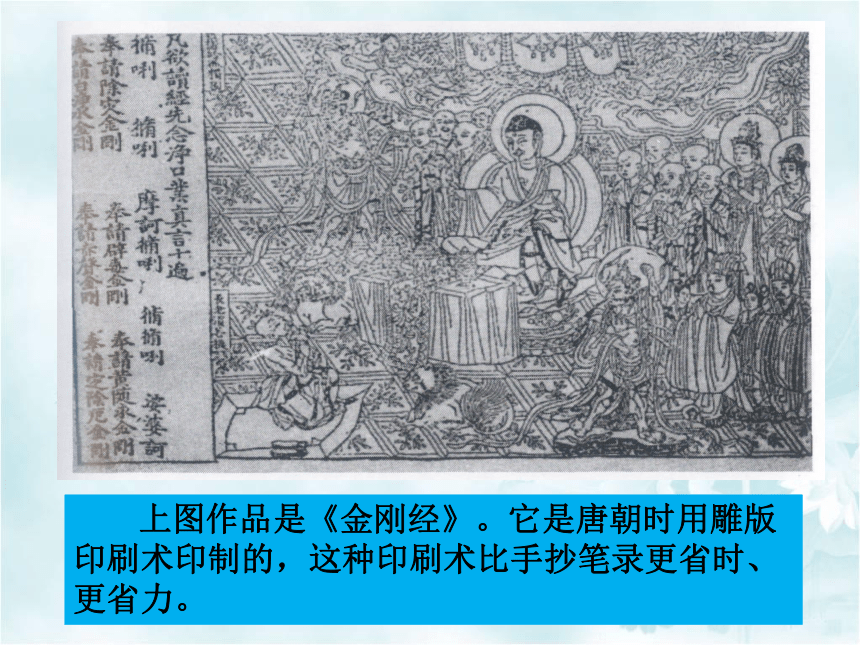 凡欲讀經先念淨口業真言一遍
脩唎 脩唎 摩訶脩唎 脩脩唎 娑婆訶
奉請除灾金剛 奉請辟毒金剛 奉請黄随求金剛
奉請白净水金剛 奉請赤聲金剛 奉請定除厄金剛
長老須菩提
上图作品是《金刚经》。它是唐朝时用雕版
印刷术印制的，这种印刷术比手抄笔录更省时、
更省力。